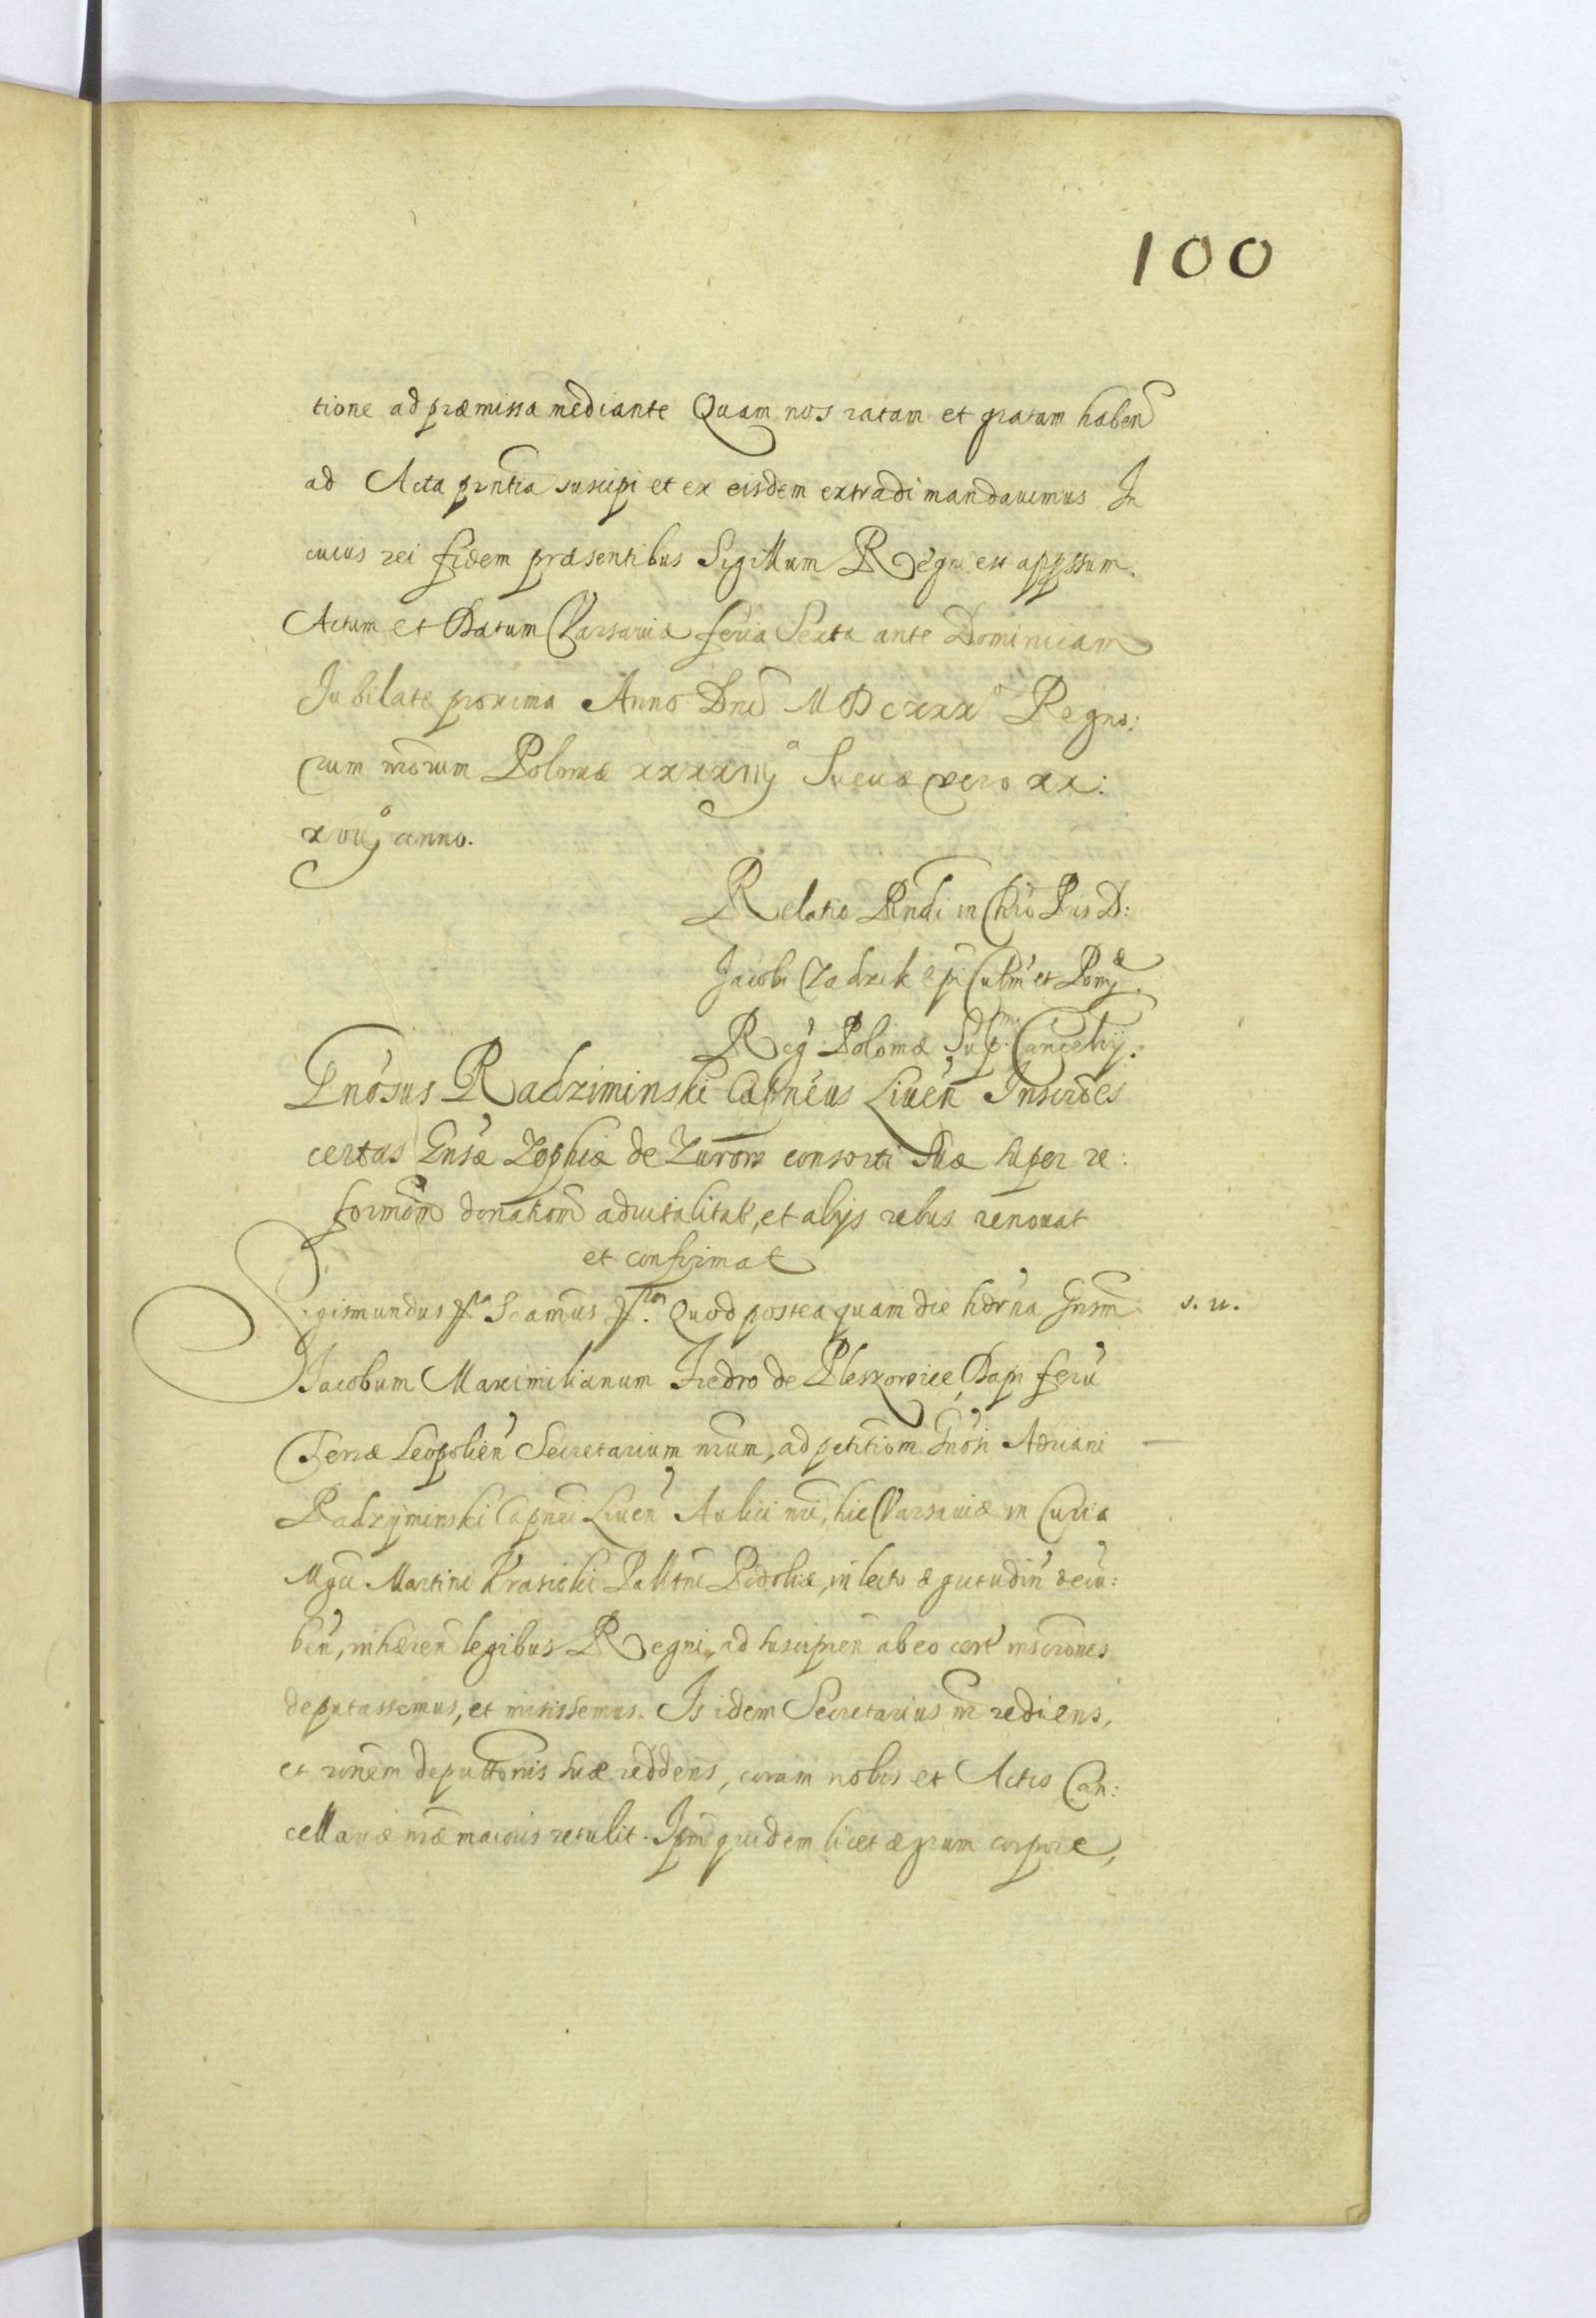 100
tione ad præmissa mediante Quam nos ratam et gratam haben̄
ad Acta pn̄tia suscipi et ex eisdem extradi mandauimus In
cuius rei fidem præsentibus Sigillum Regni est appssum.
Actum et Datum Varsauiæ feria Sexta ante Dominicam
Jubilate proxima Anno Dn̄i MDcxxxº Regno:
rum nr̄orum Poloniæ xxxxiijº Sueciæ vero xx:
xvijº anno.
Relatio Rn̄di in Chr̄o Pris D:
Jacobi Zadzik epi Culm̄ et Pomæ.
Reg: Poloniæ Supm. Cancellrij.
Gn̄osus Radziminski Capn̄eus Liuen̄ Inscrōes
certas Gn̄sæ Zophiæ de Zurow consorti suæ super re:
formōm donatiom̄ aduitalitat̄, et alijs rebus renouat
et confirmat
Sigismundus ptā Scamus ptm. Quod postea quam die hdr̄na Gn̄sm s. n.
Jacobum Maximilianum Fredro de Pleszowice, Dapiferū
Terræ Leopolien̄ Secretarium nr̄um, ad petitiom̄ Gn̄osi Adriani
Radzyminski Capn̄ei Liuen̄ Aulici nr̄i, hic Varsauiæ in Curia
Mgci Martini Krasicki Pallt̄ni Podoliæ, in lecto ægritudin̄ decu:
ben̄, inhæren̄ legibus Regni, ad suscipien̄ ab eo cert̄ inscrōnes
deputassemus, et misissemus. Is idem Secretarius nr̄ rediens,
et rōnem deputtōnis suæ reddens, coram nobis et Actis Can:
cellariæ nr̄æ maioris retulit. Ipm̄ quidem licet ægrum corpore,